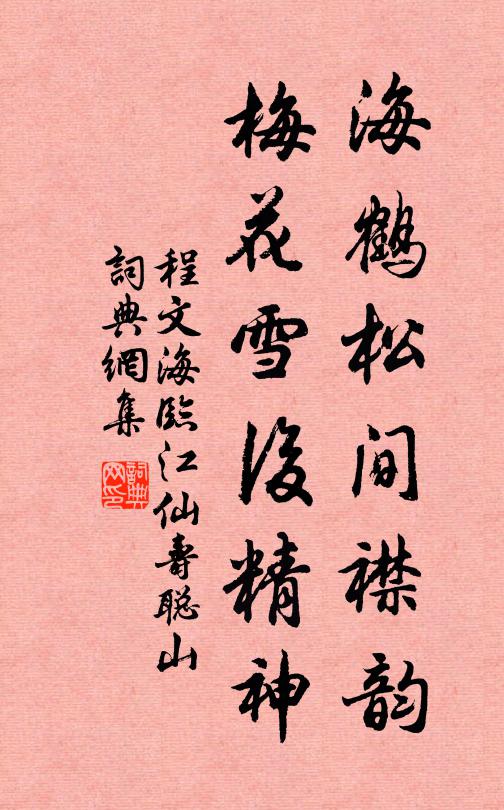 海鶴松间襟韵
梅花雪後精神
程文海臨江仙壽聡山
詞典網集
詞典网印